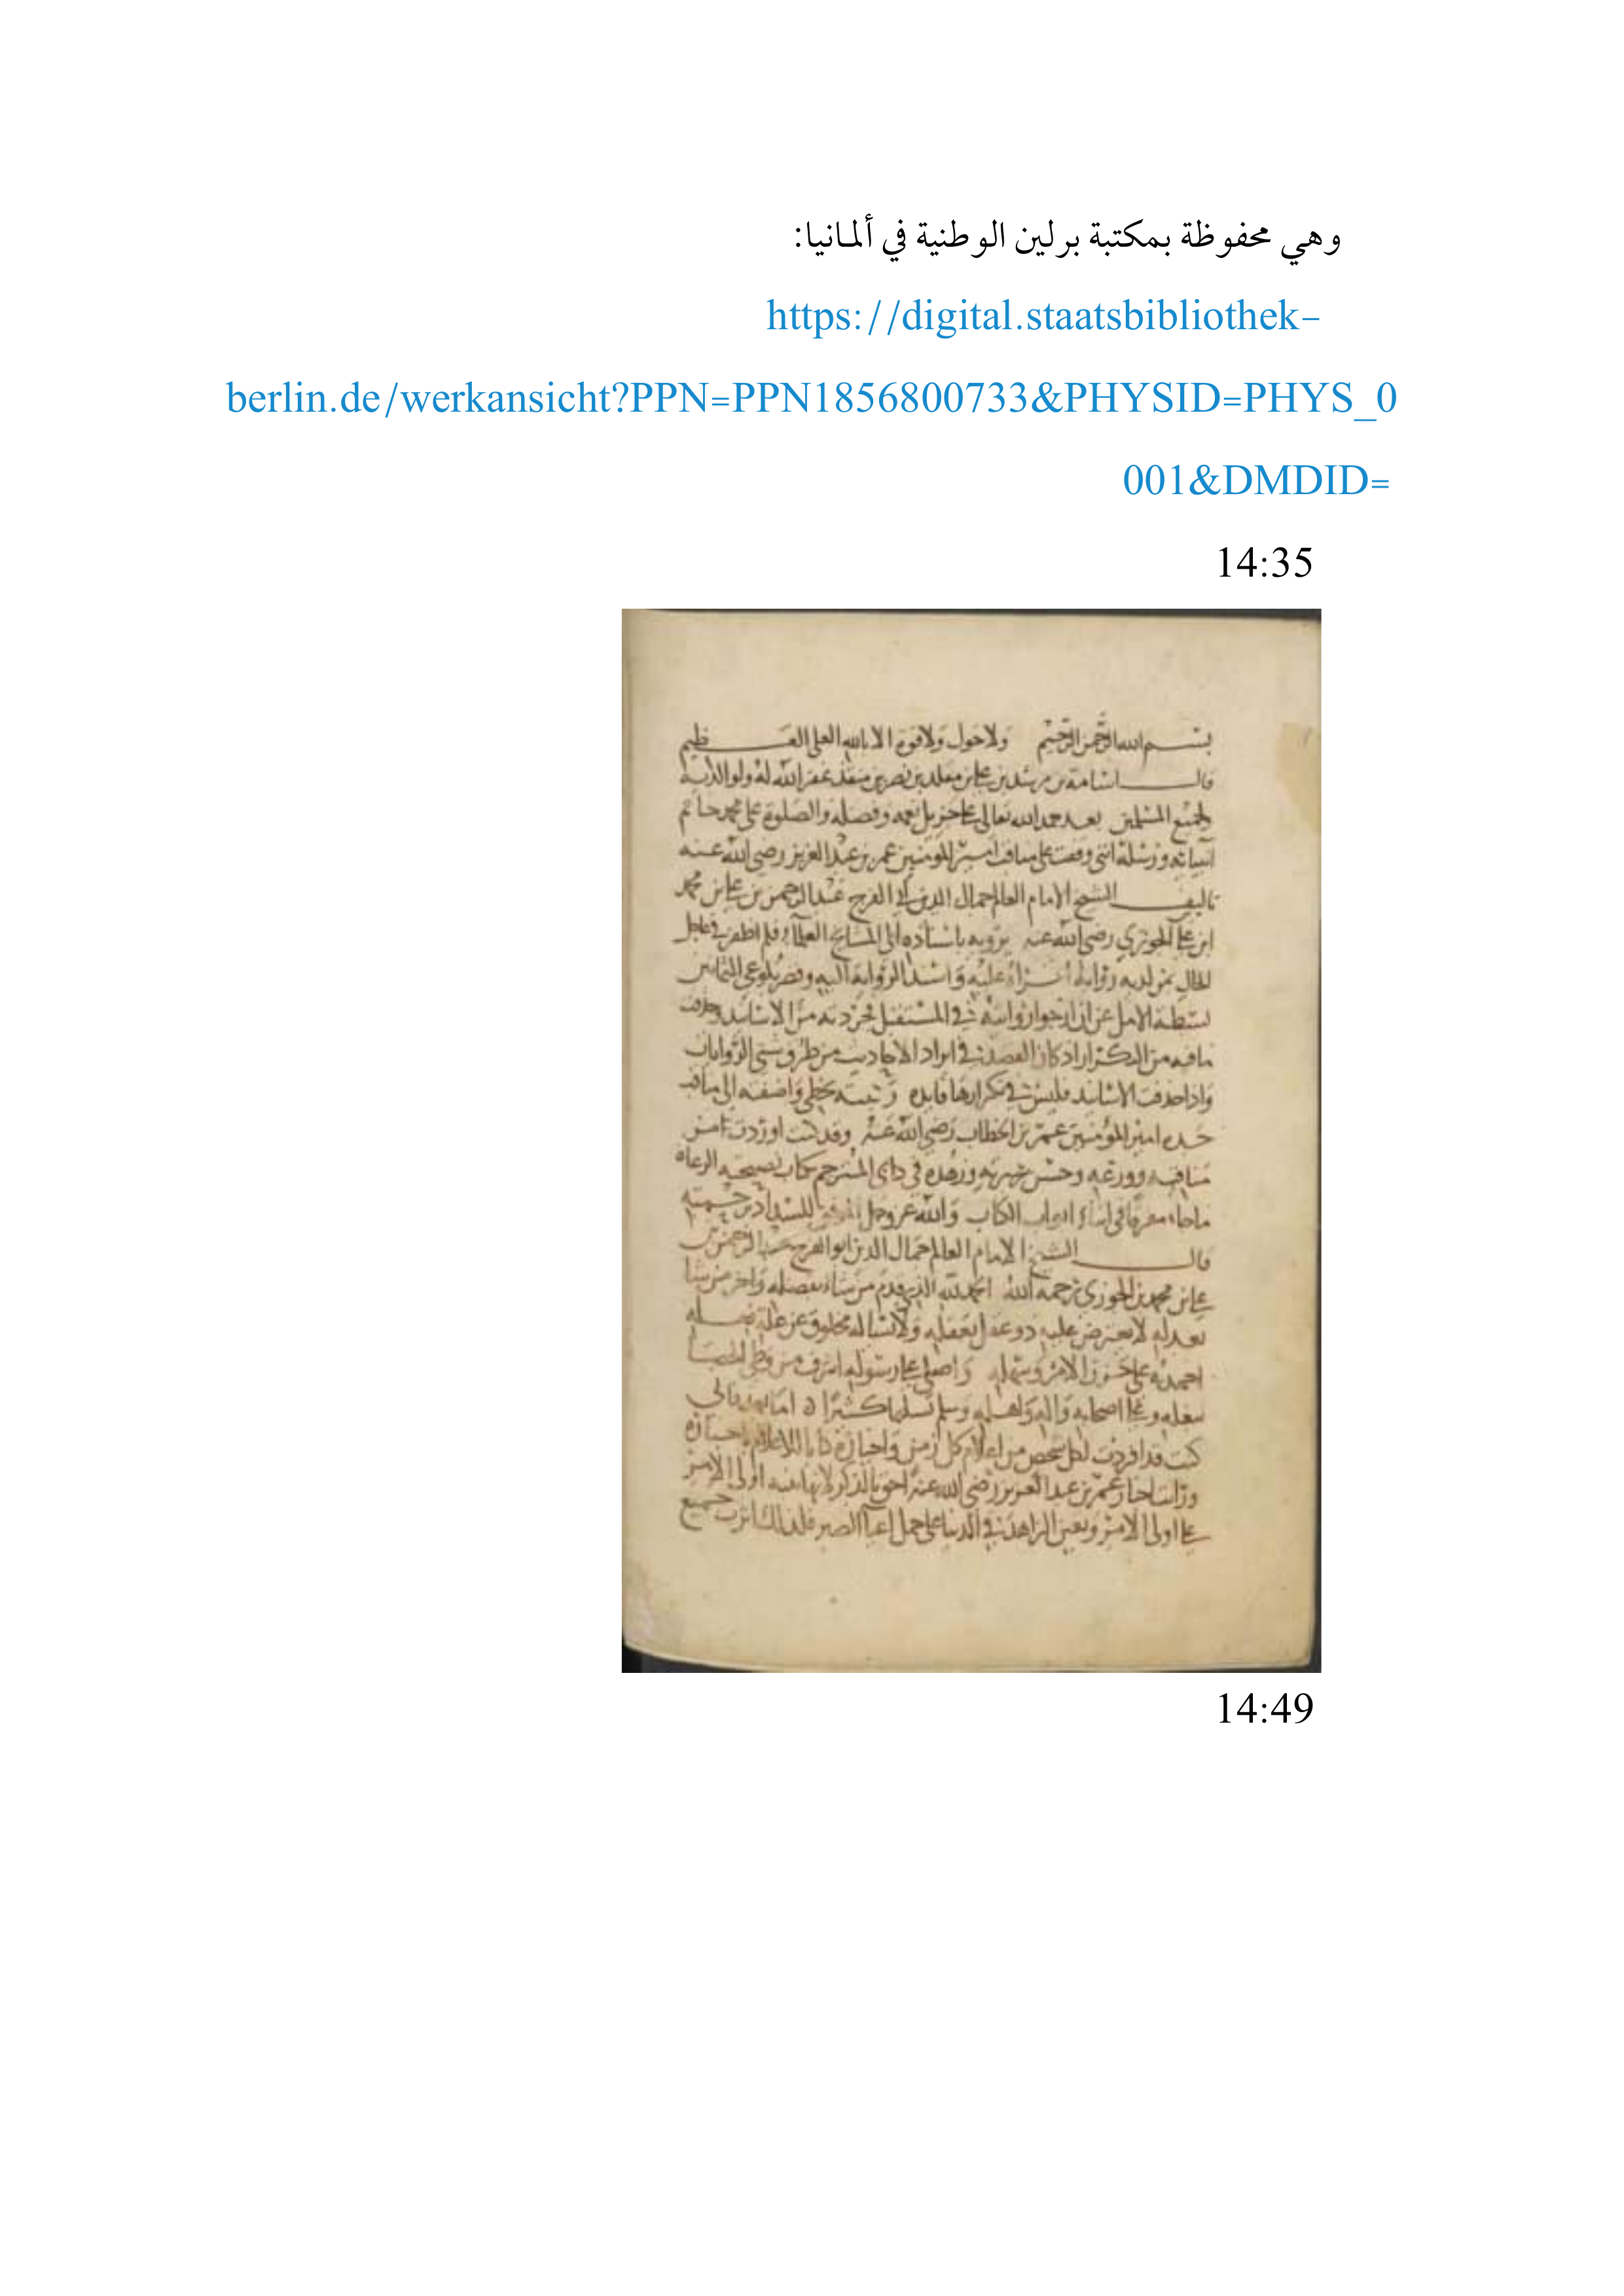 وهي محفوظة بمكتبة برلين الوطنية في ألمانيا:
https://digital.staatsbibliothek-
berlin.de/werkansicht?PPN=PPN1856800733&PHYSID=PHYS_0
001&DMDID=
14:35
بسم الله الرحمن الرحيم ولا حول ولا قوة الا بالله العلي العظيم
قال اسامة بن مرشد بن علي بن مقلد بن نصر بن منقذ غفر الله له ولوالديه
ولجميع المسلمين بعد حمد الله تعالى على جزيل نعمه وفضله والصلوة على محمد خاتم
انبيائه ورسله انني وقفت على مناقب امير المومنين عمر بن عبد العزيز رضي الله عنه
تاليف الشيخ الامام العالم جمال الدين ابي الفرج عبد الرحمن بن علي بن محمد
ابن علي الجوزي رضي الله عنه يرويه باسناده الى المشايخ العلماء فلم اظفر في عاجل
الحال بمن لديه رواية اقراه عليه واسند الرواية اليه وقصر بلوغي الثمانين
بسطة الامل عن ان ارجوا روايته في المستقبل فجردته من الاسانيد وحذفت
ما فيه من التكرار اذ كان القصد في ايراد الاحاديث من طرق شتى الروايات
واذا حذفت الاسانيد فليس في تكرارها فايده وكتبته بخطي واضفته الى مناقب
جده امير المؤمنين عمر بن الخطاب رضي الله عنه وقد كنت اوردت من
مناقبه وورعه وحسن سيرته وزهده في كتابي المترجم بكتاب نصيحة الرعاة
ما جاء مفرقا في اثناء ابواب الكتاب والله عز وجل الموفق للسداد برحمته
قال الشيخ الامام العالم جمال الدين ابو الفرج عبد الرحمن بن
علي بن محمد بن الجوزي رحمه الله الحمد لله الذي قدم من شاء بفضله واخر من شا
بعدله لا يعترض عليه ذو عقل بعقله ولا يساله مخلوق عن علة فعله
احمده على حزن الامر وسهله واصلي على رسوله اشرف من وطئ الحصا
بنعله وعلى اصحابه واله واهله وسلم تسليما كثيرا اما بعد فاني
كنت قد افردت لكل شخص من اعلام كل زمن واخياره كتابا للاعلام باخباره
ورايت اخبار عمر بن عبد العزيز رضي الله عنه احق بالذكر لانها تنبه اولي الامر
على اولى الامر وتعين الزاهد في الدنيا على حمل اعبآ الصبر فلذلك اثرت جميع
14:49